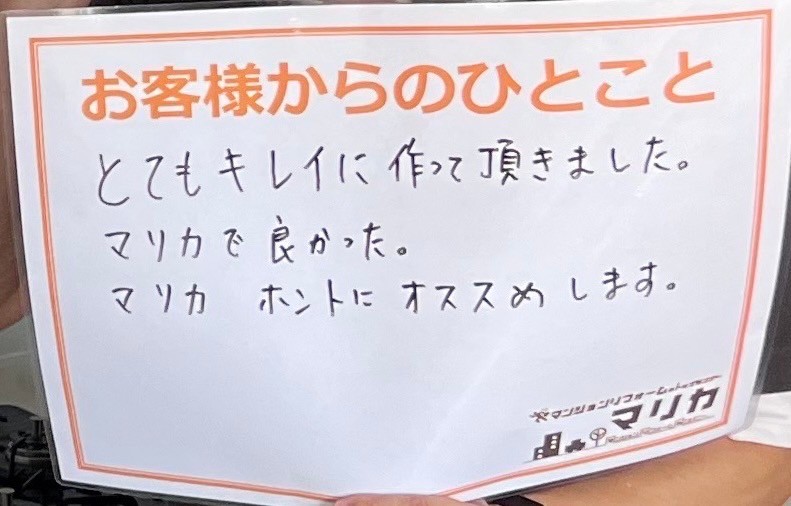 お客様からのひとこと
とてもキレイに作って頂きました。
マリカで良かった。
マリカ ホントにオススめします。
マンションリフォーム
マリカ